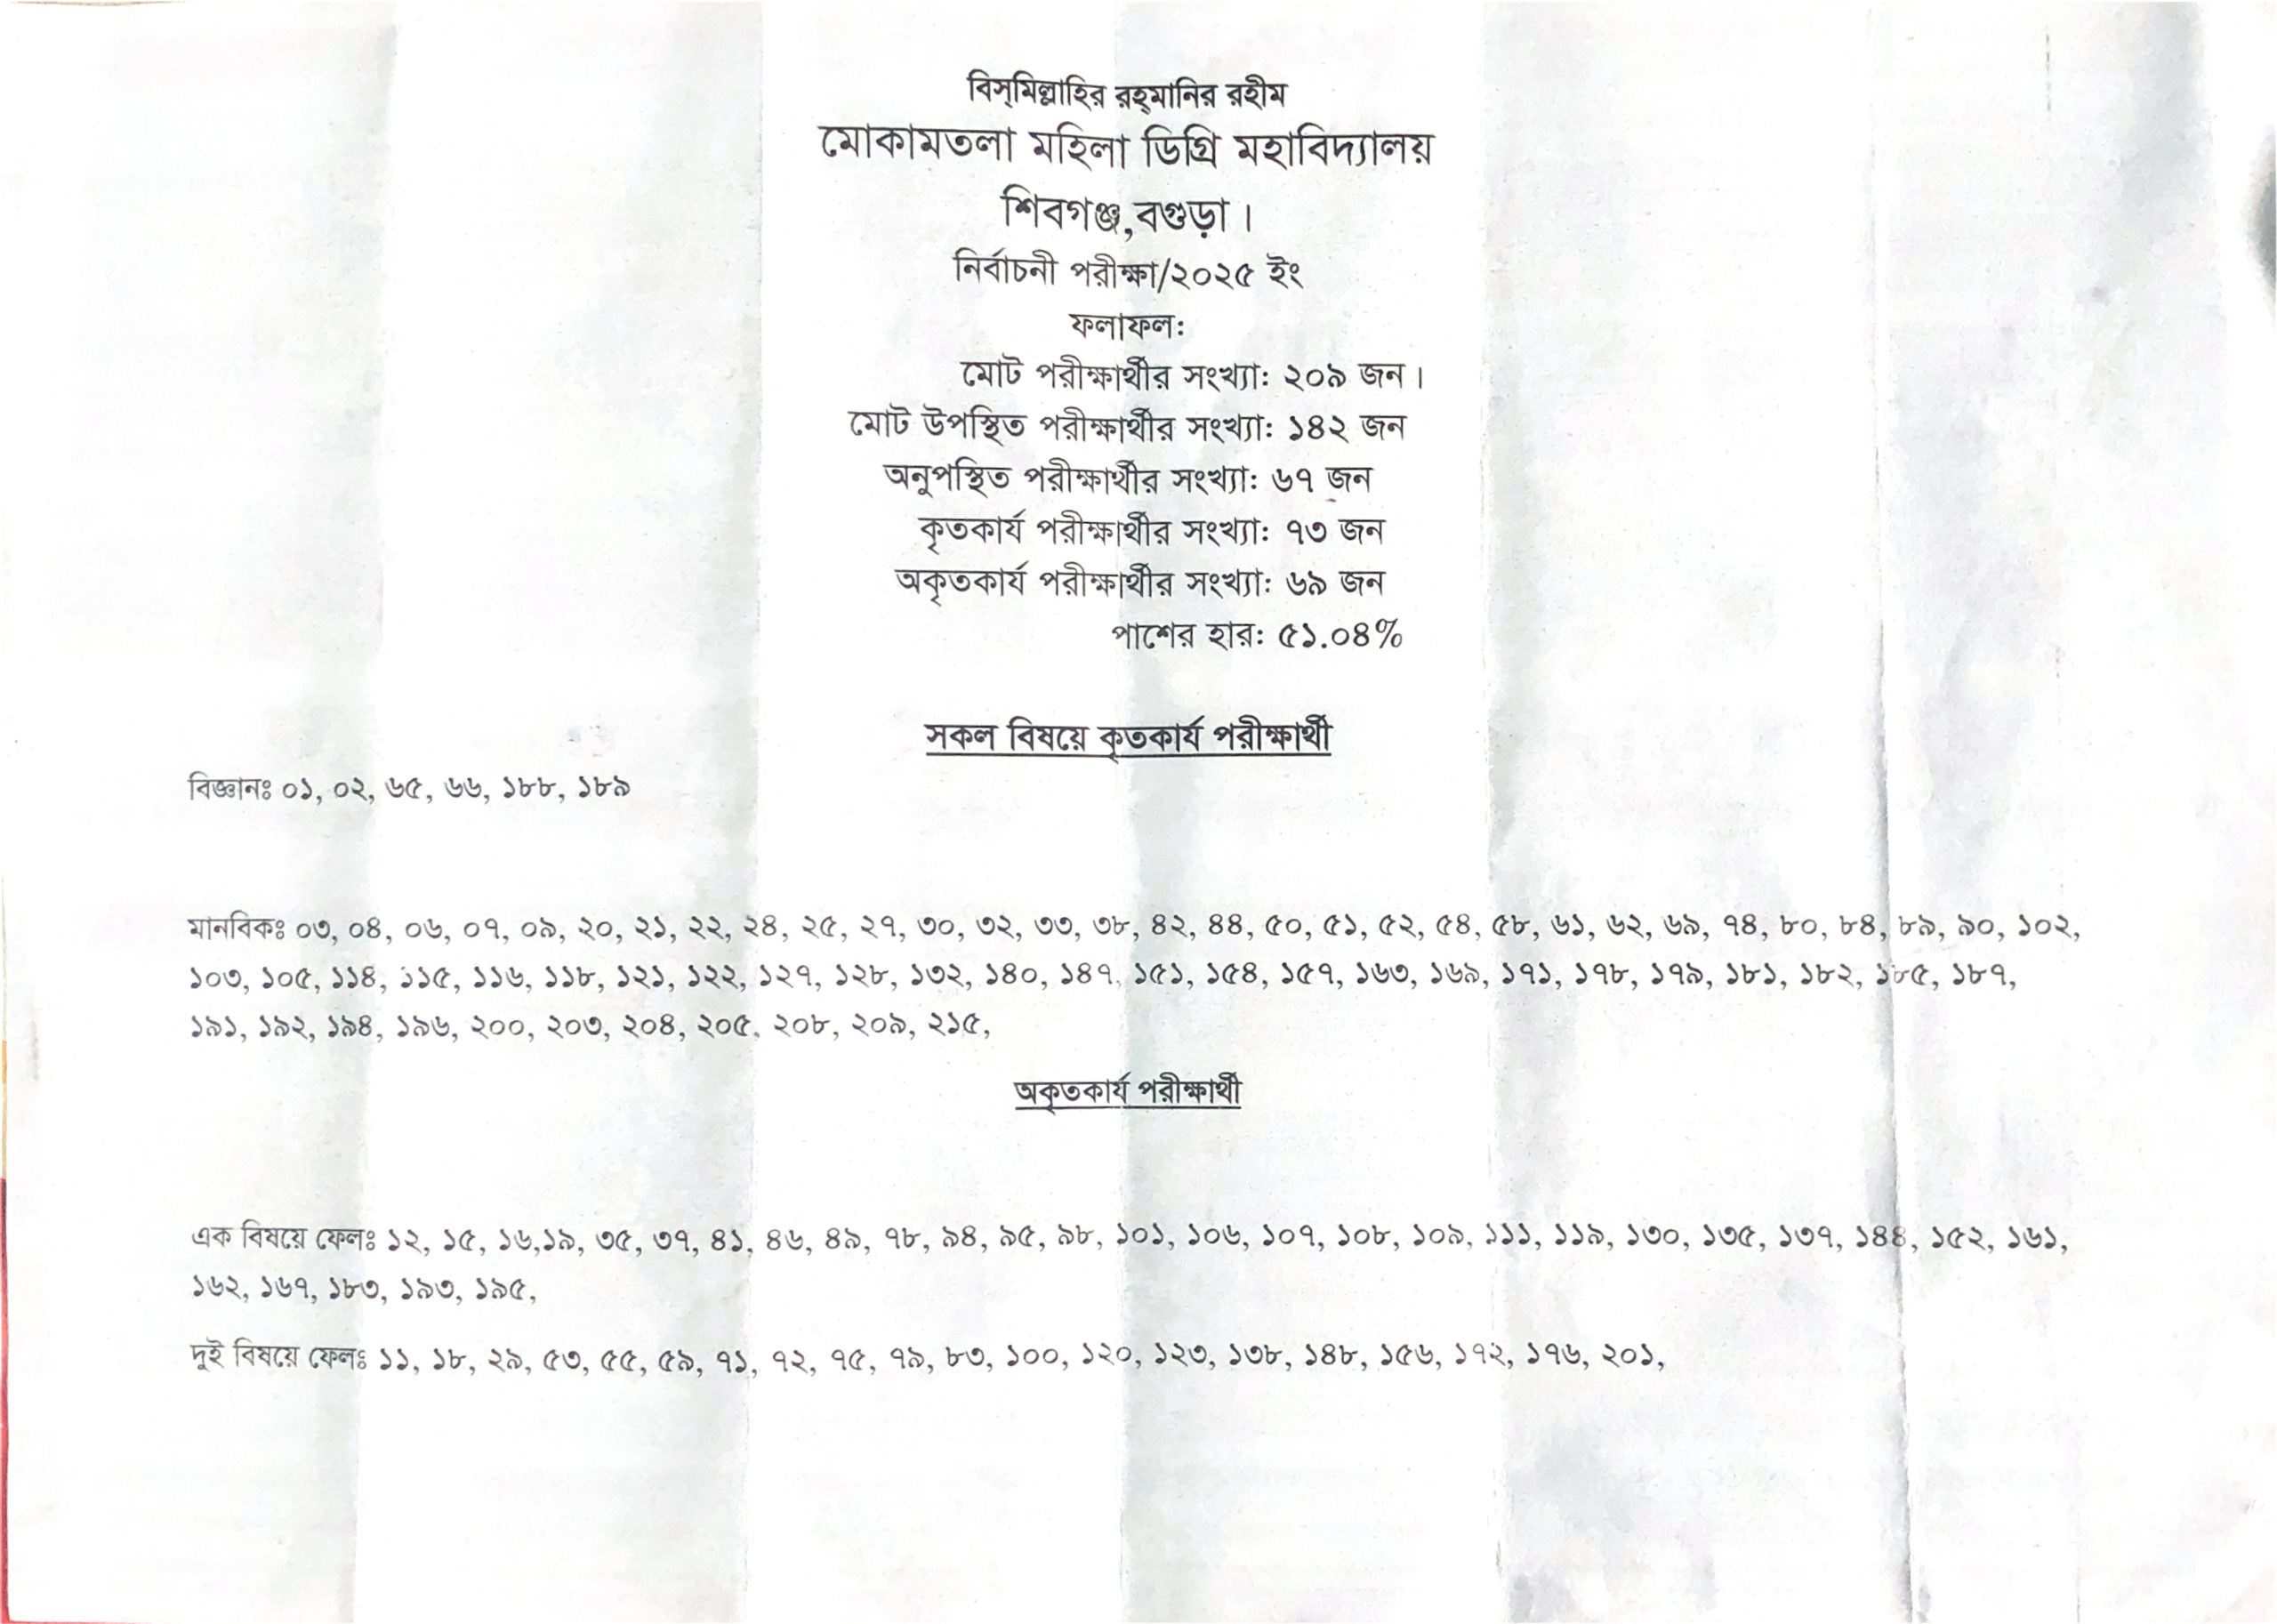 বিস্‌মিল্লাহির রহ্‌মানির রহীম
মোকামতলা মহিলা ডিগ্রি মহাবিদ্যালয়
শিবগঞ্জ,বগুড়া।
নির্বাচনী পরীক্ষা/২০২৫ ইং
ফলাফল:
মোট পরীক্ষার্থীর সংখ্যা: ২০৯ জন।
মোট উপস্থিত পরীক্ষার্থীর সংখ্যা: ১৪২ জন
অনুপস্থিত পরীক্ষার্থীর সংখ্যা: ৬৭ জন
কৃতকার্য পরীক্ষার্থীর সংখ্যা: ৭৩ জন
অকৃতকার্য পরীক্ষার্থীর সংখ্যা: ৬৯ জন
পাশের হার: ৫১.০৪%
সকল বিষয়ে কৃতকার্য পরীক্ষার্থী
বিজ্ঞানঃ ০১, ০২, ৬৫, ৬৬, ১৮৮, ১৮৯
মানবিকঃ ০৩, ০৪, ০৬, ০৭, ০৯, ২০, ২১, ২২, ২৪, ২৫, ২৭, ৩০, ৩২, ৩৩, ৩৮, ৪২, ৪৪, ৫০, ৫১, ৫২, ৫৪, ৫৮, ৬১, ৬২, ৬৯, ৭৪, ৮০, ৮৪, ৮৯, ৯০, ১০২,
১০৩, ১০৫, ১১৪, ১১৫, ১১৬, ১১৮, ১২১, ১২২, ১২৭, ১২৮, ১৩২, ১৪০, ১৪৭, ১৫১, ১৫৪, ১৫৭, ১৬৩, ১৬৯, ১৭১, ১৭৮, ১৭৯, ১৮১, ১৮২, ১৮৫, ১৮৭,
১৯১, ১৯২, ১৯৪, ১৯৬, ২০০, ২০৩, ২০৪, ২০৫, ২০৮, ২০৯, ২১৫,
অকৃতকার্য পরীক্ষার্থী
এক বিষয়ে ফেলঃ ১২, ১৫, ১৬,১৯, ৩৫, ৩৭, ৪১, ৪৬, ৪৯, ৭৮, ৯৪, ৯৫, ৯৮, ১০১, ১০৬, ১০৭, ১০৮, ১০৯, ১১১, ১১৯, ১৩০, ১৩৫, ১৩৭, ১৪৪, ১৫২, ১৬১,
১৬২, ১৬৭, ১৮৩, ১৯৩, ১৯৫,
দুই বিষয়ে ফেলঃ ১১, ১৮, ২৯, ৫৩, ৫৫, ৫৯, ৭১, ৭২, ৭৫, ৭৯, ৮৩, ১০০, ১২০, ১২৩, ১৩৮, ১৪৮, ১৫৬, ১৭২, ১৭৬, ২০১,